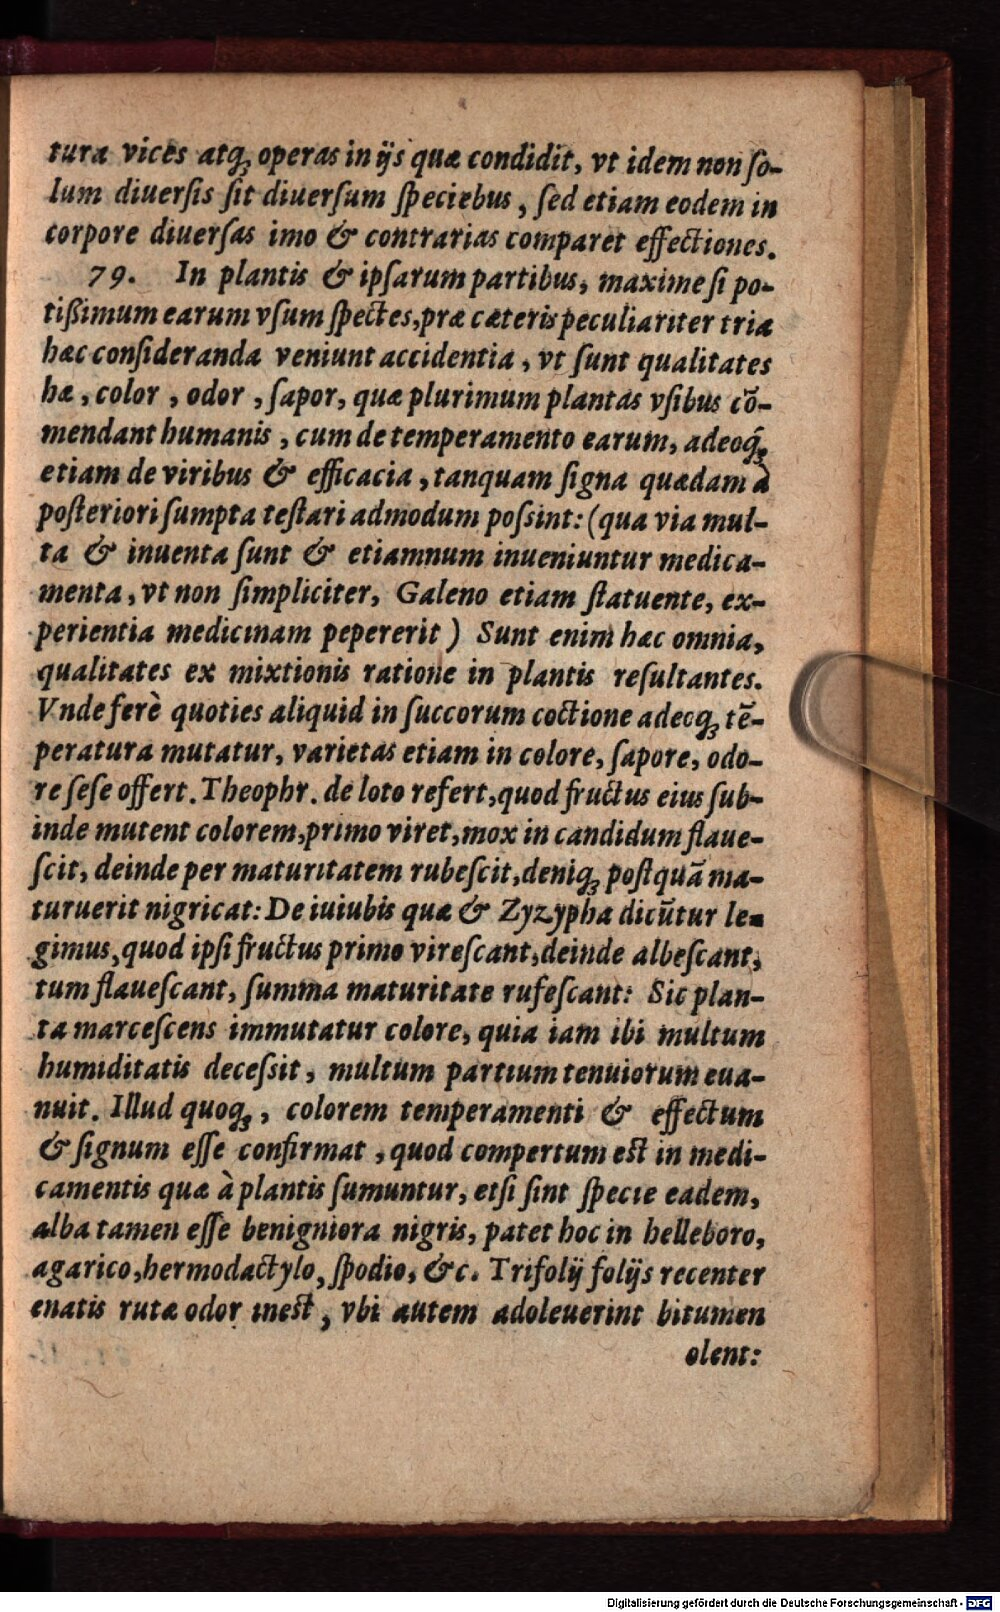 turæ vices atq; operas in ijs quæ condidit, vt idem non ſo-
lum diuerſis ſit diuerſum ſpeciebus, ſed etiam eodem in
corpore diuerſas imo & contrarias comparet effectiones.
79. In plantis & ipſarum partibus, maxime ſi po-
tiſſimum earum vſum ſpectes, præ cæteris peculiariter tria
hæc conſideranda veniunt accidentia, vt ſunt qualitates
hæ, color, odor, ſapor, quæ plurimum plantas vſibus cō-
mendant humanis, cum de temperamento earum, adeoq́;
etiam de viribus & efficacia, tanquam ſigna quædam à
poſteriori ſumpta teſtari admodum poſsint: (qua via mul-
ta & inuenta ſunt & etiamnum inueniuntur medica-
menta, vt non ſimpliciter, Galeno etiam ſtatuente, ex-
perientia medicinam pepererit) Sunt enim hæc omnia,
qualitates ex mixtionis ratione in plantis reſultantes.
Vnde ferè quoties aliquid in ſuccorum coctione adeoq; tē-
peratura mutatur, varietas etiam in colore, ſapore, odo-
re ſeſe offert. Theophr. de loto refert, quod fructus eius ſub-
inde mutent colorem, primo viret, mox in candidum flaue-
ſcit, deinde per maturitatem rubeſcit, deniq; poſtquã ma-
turuerit nigricat: De iuiubis quæ & Zyzypha dicũtur le-
gimus, quod ipſi fructus primo vireſcant, deinde albeſcant,
tum flaueſcant, ſumma maturitate rufeſcant: Sic plan-
ta marceſcens immutatur colore, quia iam ibi multum
humiditatis deceſsit, multum partium tenuiorum eua-
nuit. Illud quoq;, colorem temperamenti & effectum
& ſignum eſſe confirmat, quod compertum eſt in medi-
camentis quæ à plantis ſumuntur, etſi ſint ſpecie eadem,
alba tamen eſſe benigniora nigris, patet hoc in helleboro,
agarico, hermodactylo, ſpodio, &c. Trifolij folijs recenter
enatis rutæ odor ineſt, vbi autem adoleuerint bitumen
olent:
Digitalisierung gefördert durch die Deutsche Forschungsgemeinschaft - DFG